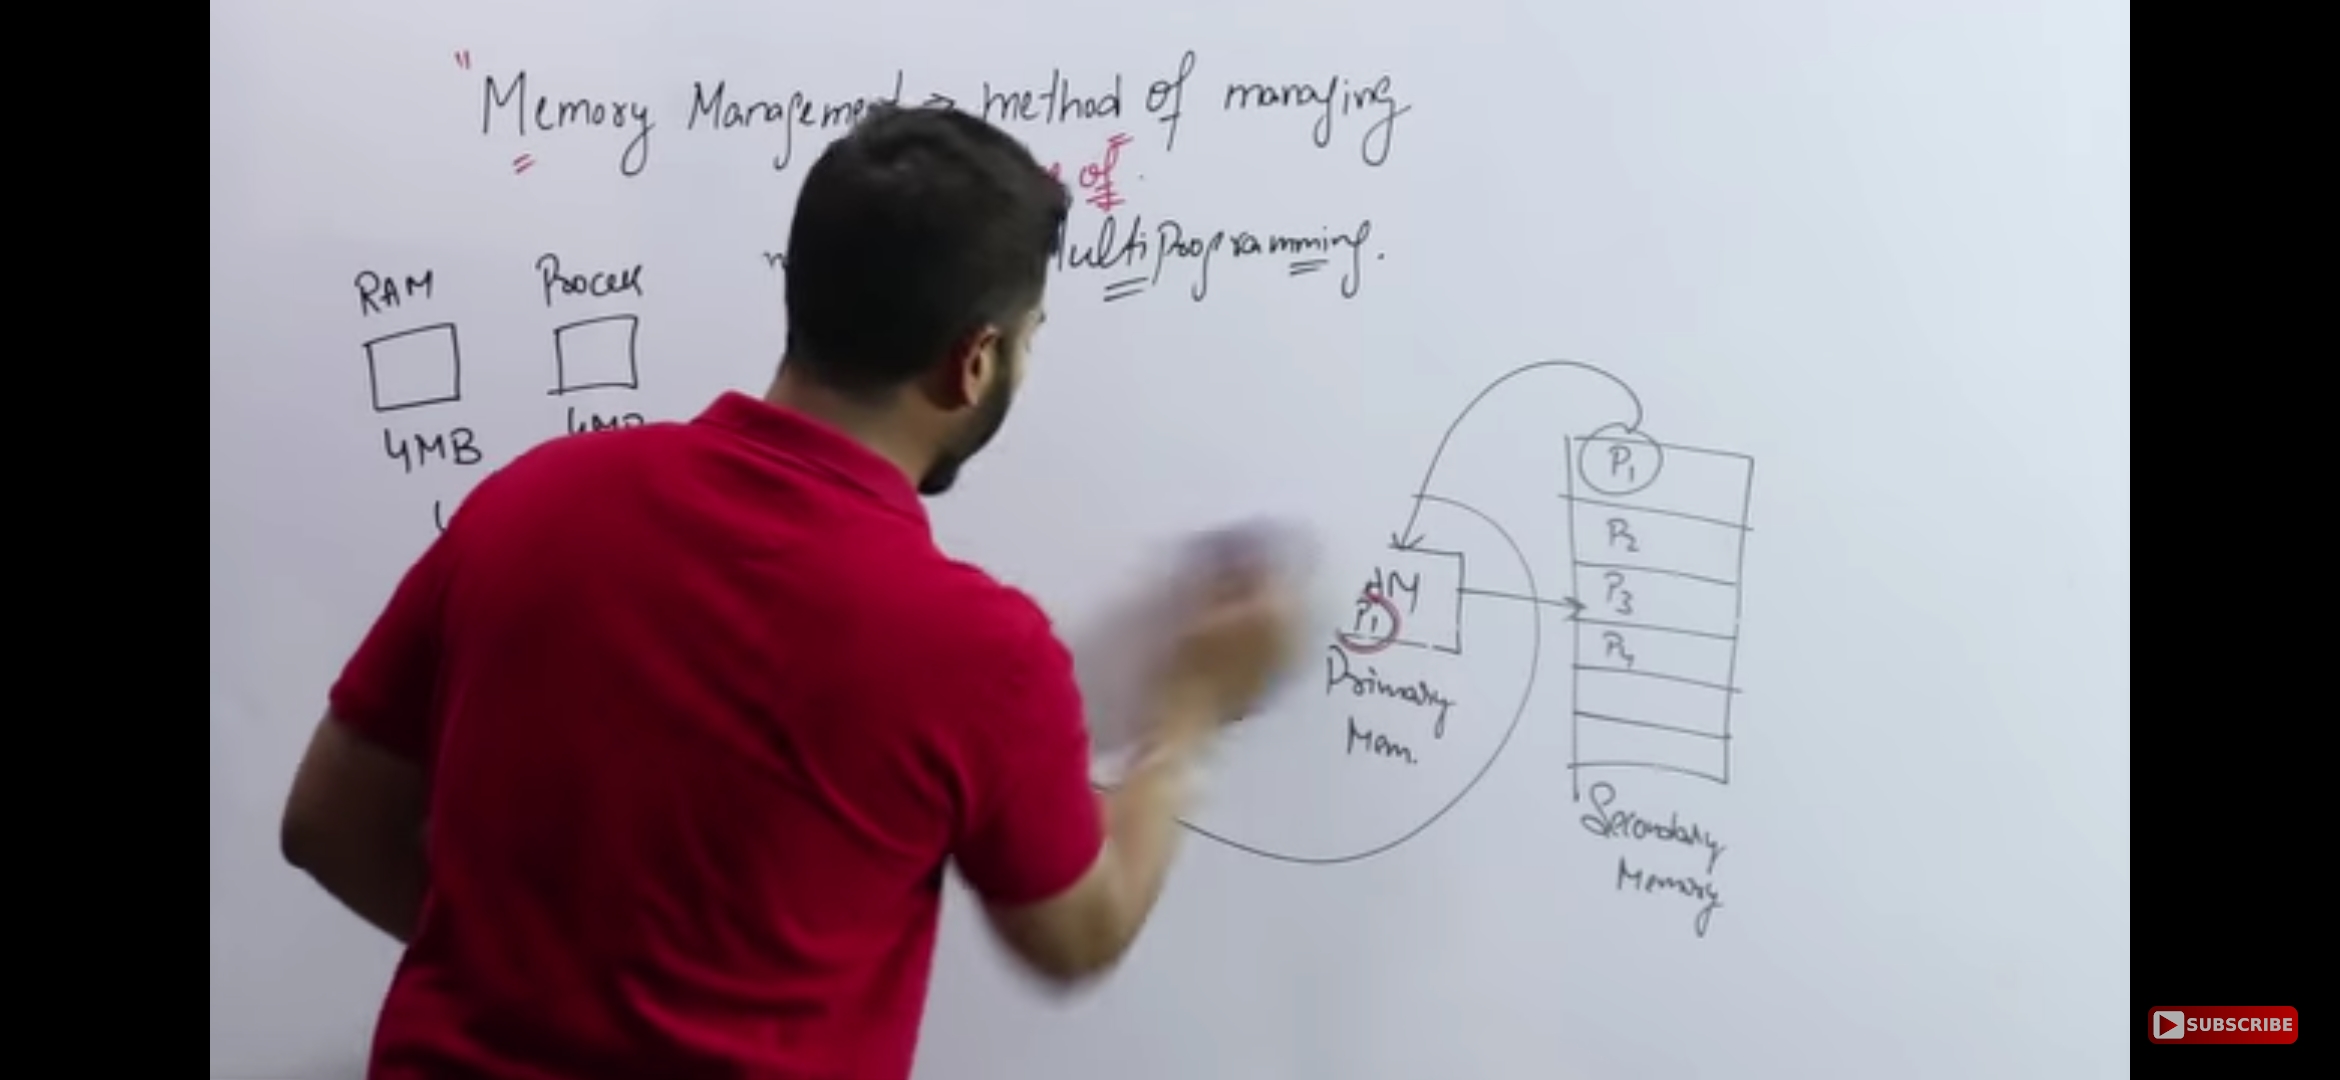 "Memory Management → method of managing
of
MultiProgramming.
RAM
Process
4MB
4MB
P1
P2
P3
P4
RAM
P1
Primary
Mem.
Secondary
Memory
SUBSCRIBE